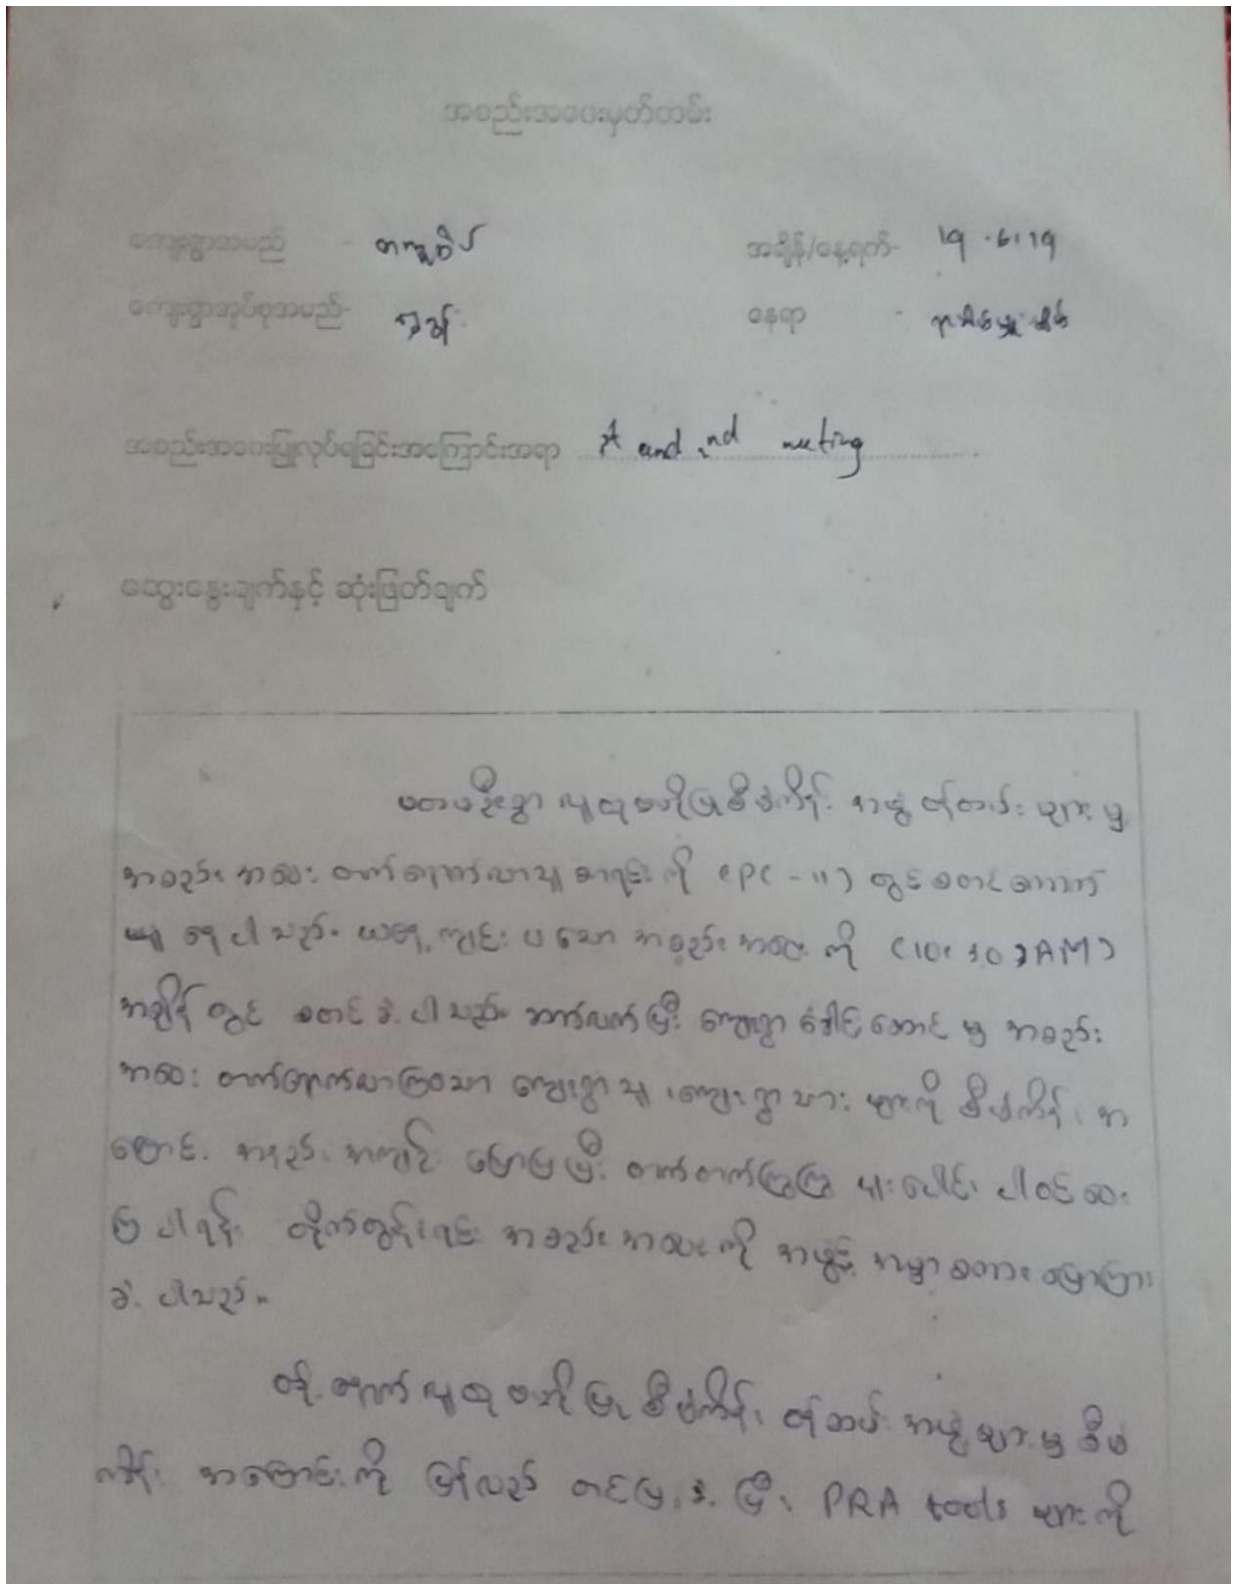 အစည်းအဝေးမှတ်တမ်း
ကျေးရွာအမည် - အချိန်/နေ့ရက်- 19.6.19
ကျေးရွာအုပ်စုအမည်- နေရာ -
အစည်းအဝေးပြုလုပ်ရခြင်းအကြောင်းအရာ 1st and 2nd meeting
ဆွေးနွေးချက်နှင့် ဆုံးဖြတ်ချက်
ပထမဦးစွာ လူထုဗဟိုပြုစီမံကိန်း အဖွဲ့ဝန်ထမ်းများမှ
အစည်းအဝေး တက်ရောက်လာသူ စာရင်းကို (PC - 11) တွင် စတင်ကောက်
ယူနေပါသည်။ ယနေ့ကျင်းပသော အစည်းအဝေးကို (10:30 AM)
အချိန်တွင် စတင်ခဲ့ပါသည်။ ဆက်လက်ပြီး ကျေးရွာခေါင်းဆောင်မှ အစည်း
အဝေး တက်ရောက်လာကြသော ကျေးရွာသူ၊ ကျေးရွာသားများကို စီမံကိန်း အ
ကြောင်း အနည်းအကျဉ်း ပြောပြပြီး တက်တက်ကြွကြွ ပူးပေါင်း ပါဝင်ပေး
ကြပါရန် တိုက်တွန်းရင်း အစည်းအဝေးကို အဖွင့် အမှာစကား ပြောကြား
ခဲ့ပါသည်။
ထို့နောက် လူထုဗဟိုပြု စီမံကိန်း ဝန်ထမ်း အဖွဲ့များမှ စီမံ
ကိန်း အကြောင်းကို ပြန်လည် တင်ပြခဲ့ပြီး PRA tools များကို